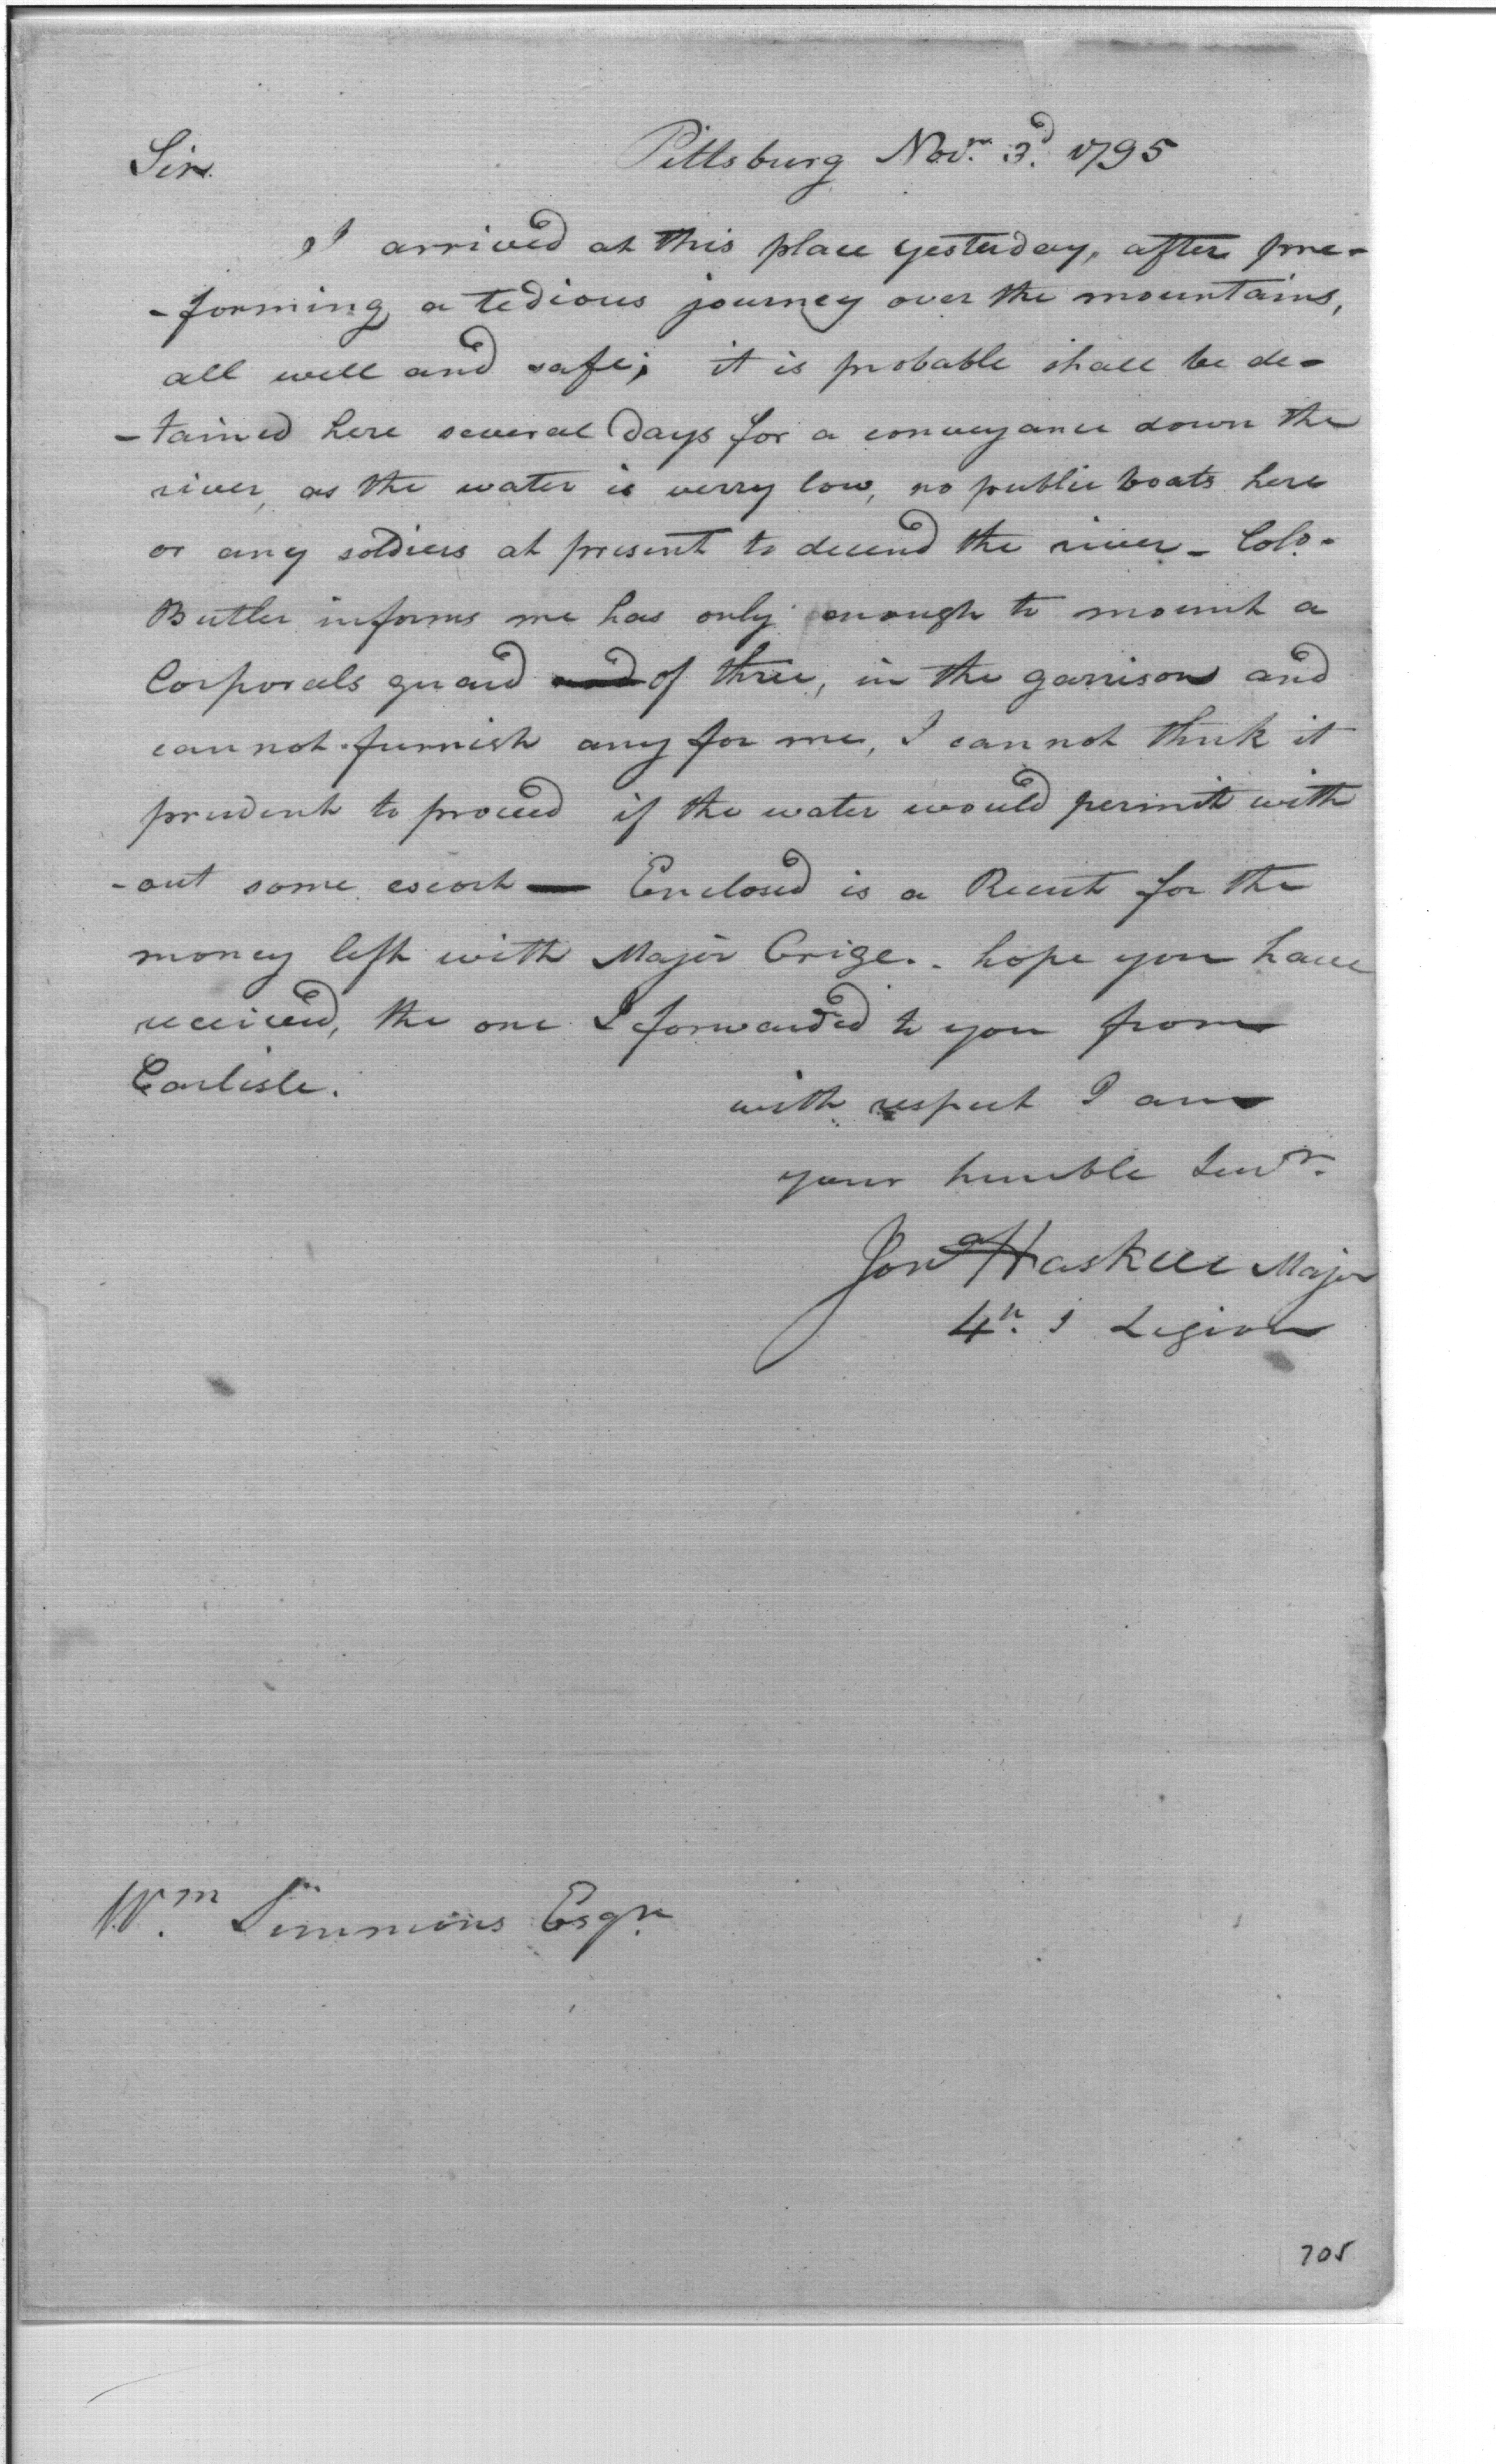 Sir. Pittsburg Novr. 3d. 1795
I arrived at this place yesterday, after pre-
-forming a tedious journey over the mountains,
all well and safe; it is probable shall be de-
-tained here several days for a conveyance down the
river, as the water is verry low, no public boats here
or any soldiers at present to decend the river - Colo.
Butler informs me has only enough to mount a
Corporals guard and of three, in the garrison and
can not furnish any for me, I can not think it
prudent to proceed if the water would permit with
-out some escort — Enclosed is a Receit for the
money left with Major Crige.. hope you have
received, the one I forwarded to you from
Carlisle.
with respect I am
your humble Servr.
Jona Haskell Major
4th. S Legion
Wm. Simmons Esqr.
705